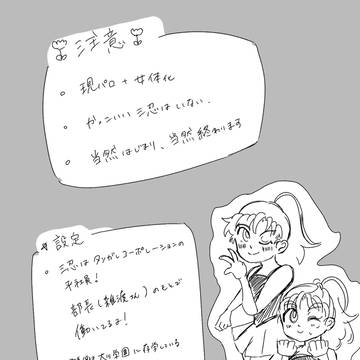 注意
・現パロ+女体化
・かっこいい三忍はいない.
・当然はじまり、当然終わります
設定
・三忍はタソガレコーポレーションの
平社員!
部長(雑渡さん)のもとで
働いてるよ!
大川学園に在学している